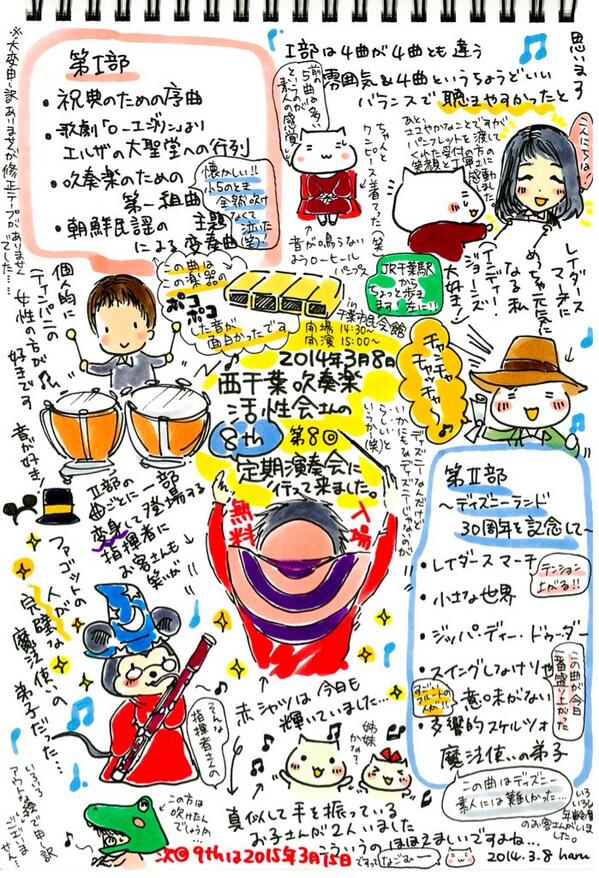 第Ⅰ部
・祝典のための序曲
・歌劇「ローエングリン」より
エルザの大聖堂への行列
・吹奏楽のための
第一組曲
・朝鮮民謡の主題
による変奏曲
懐かしい!!
小5のとき
全然吹け
なくて
泣いた
(笑)
Ⅰ部は4曲が4曲とも違う
雰囲気&4曲というちょうどいい
バランスで聴きやすかったと
思います
前の
5曲は多い
というのが
素人の
感覚
ちゃんと
ワンピース着てった(笑
昔が鳴らない
おうローヒール
パンプス
こんにちは!
レイダース
マーチに
めちゃ元気に
なる私
インディ・
ジョーンズ
大好き!
JR千葉駅
から
ちょっと歩き
ます 左に!!
個人的に
ティンパニの
女性の方が
好きです
音が好き
この曲は
この楽器の
ポコ
ポコ
した音が
面白かったです
in
千葉市民会館
開場 14:30~
開演 15:00~
2014年3月8日
西千葉吹奏楽
活性会さんの
8th
第8回
定期演奏会に
行って来ました。
入場
無料
チャンチャ
チャッチャー
チャンチャ
ディズニーなんだけど
いかにもなディズニーじゃないのが
らしい
というか(笑)
Ⅱ部の
曲ごとに一部
変身して登場する
指揮者に
お客さんも
笑いが
ファゴットの
人が
完璧な
魔法使いの
弟子だった…
そんな
指揮者さんの
赤シャツは今日も
輝いていました…
姉妹
かな?
真似して手を振っている
お子さんが2人いました
こういうのほほえましいですよね…
ですって
なごみー
この方は
吹けたん
でしょうか…
いろいろ
アウトな絵で申し訳
ございません…
第Ⅱ部
~ディズニーランド
30周年を記念して~
・レイダースマーチ
テンション
上がる!!
・小さな世界
・ジッパ・ディー・ドゥー・ダー
・スイングしなけりゃ
意味がない
すごい
フルートの
人が!!
この曲が今日
一番盛り上がった
・交響的スケルツォ
魔法使いの弟子
この曲はディズニー
素人には難しかった…
いろいろな
年齢層
のお客さんがいました。
次◎9thは2015年3月15日
2014.3.8 haru